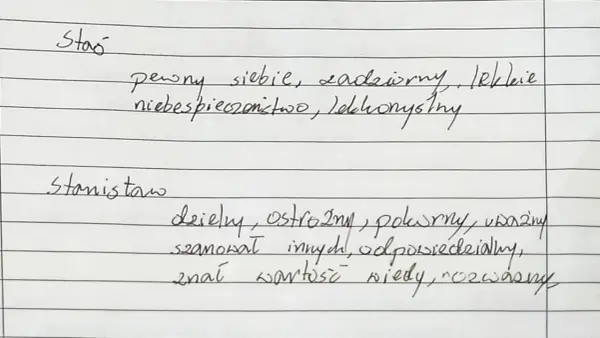 Staś
pewny siebie, zadziorny, lekkie
niebespieczeństwo, lekkomyślny
Stanisław
dzielny, ostrożny, pokorny, uważny
szanował innych, odpowiedzialny,
znał wartość wiedy, rozważny,